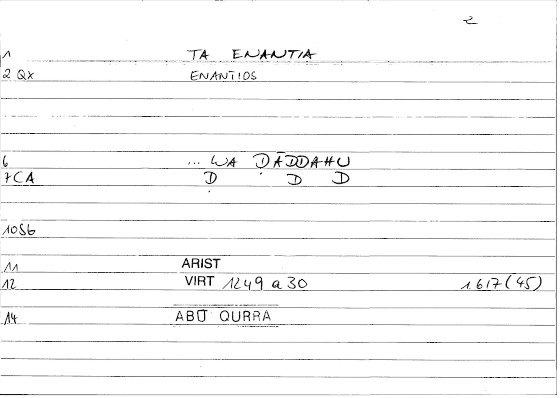 2
1 TA ENANTIA
2 QX ENANTIOS
6 ... WA ḌĀDDAHU
7 CA Ḍ D D
10 SG
11 ARIST
12 VIRT 1249 a 30 1.617 (45)
14 ABŪ QURRA